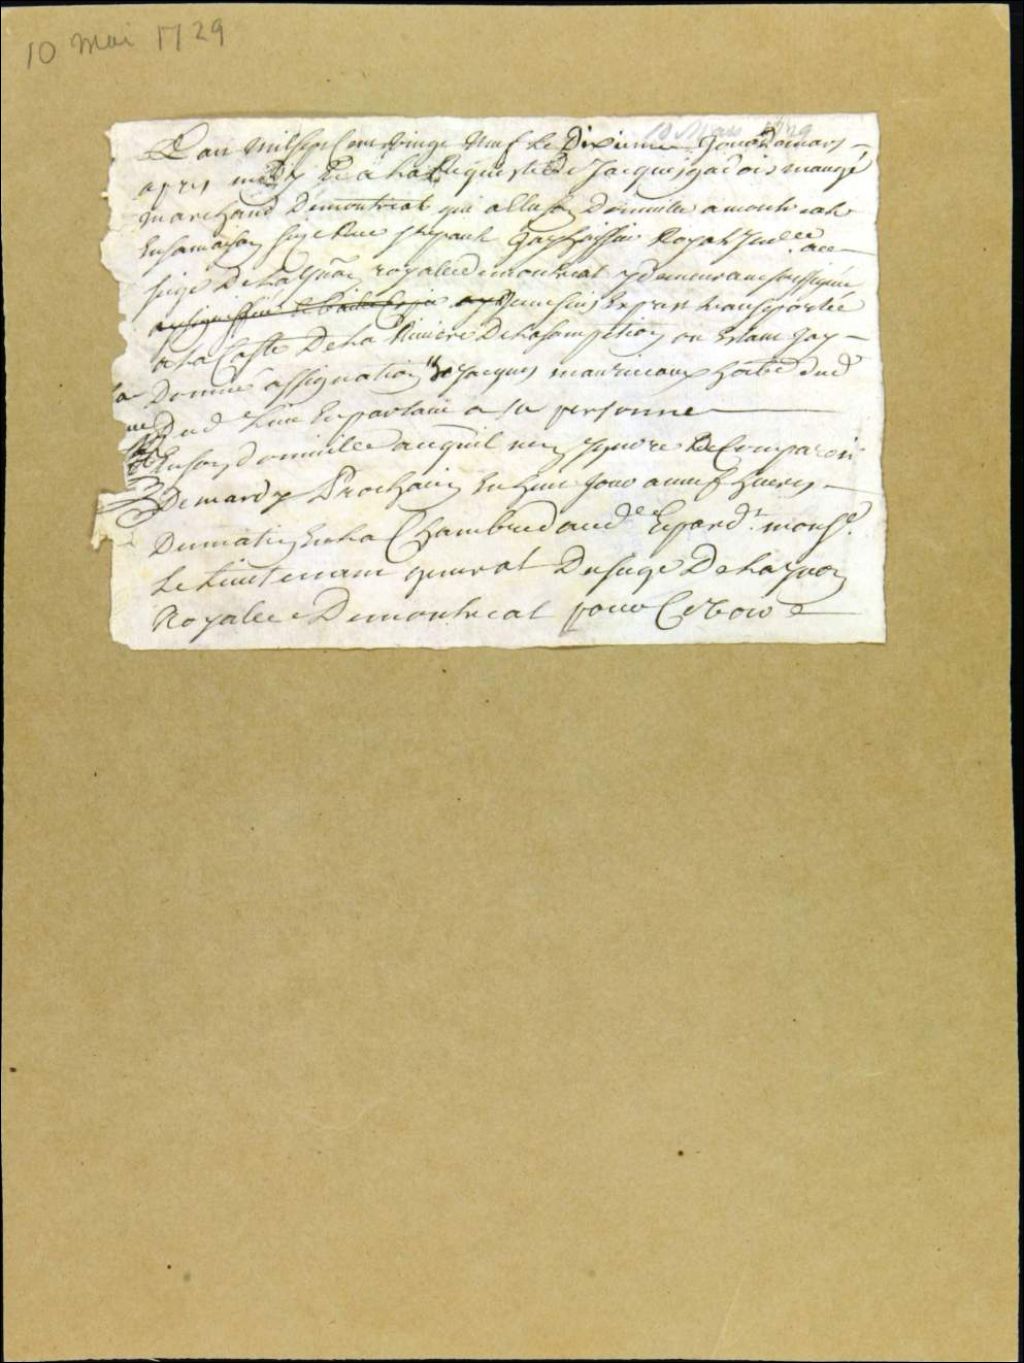 10 mai 1729
10 Mars 1729
Lan mil sept Cent vingt neuf le Dixieme Jour de mars
apres midy Et a la Requeste de Jacques gadois maugé
marchand demontreal qui a Elu son Domicille a montreal
En sa maison size Rue st paul Jay huissier Royal
siege de la Jurisd royalle de montreal y demeurant soussigné
Je me suis Expres transportée
a la Coste De La Riviere De Lasomption ou Estant Jay
Donné assignation a Jacques
Dud Lieu En parlant a sa personne
En son domicille a ce quil nen Ignore De Comparoir
De mardy Prochain En huit Jour a neuf heures
Du matin En la Chambre daud.e Et pard.t mons.r
Le Lieutenant general Du siege De la Jurisd
Royalle De montreal pour